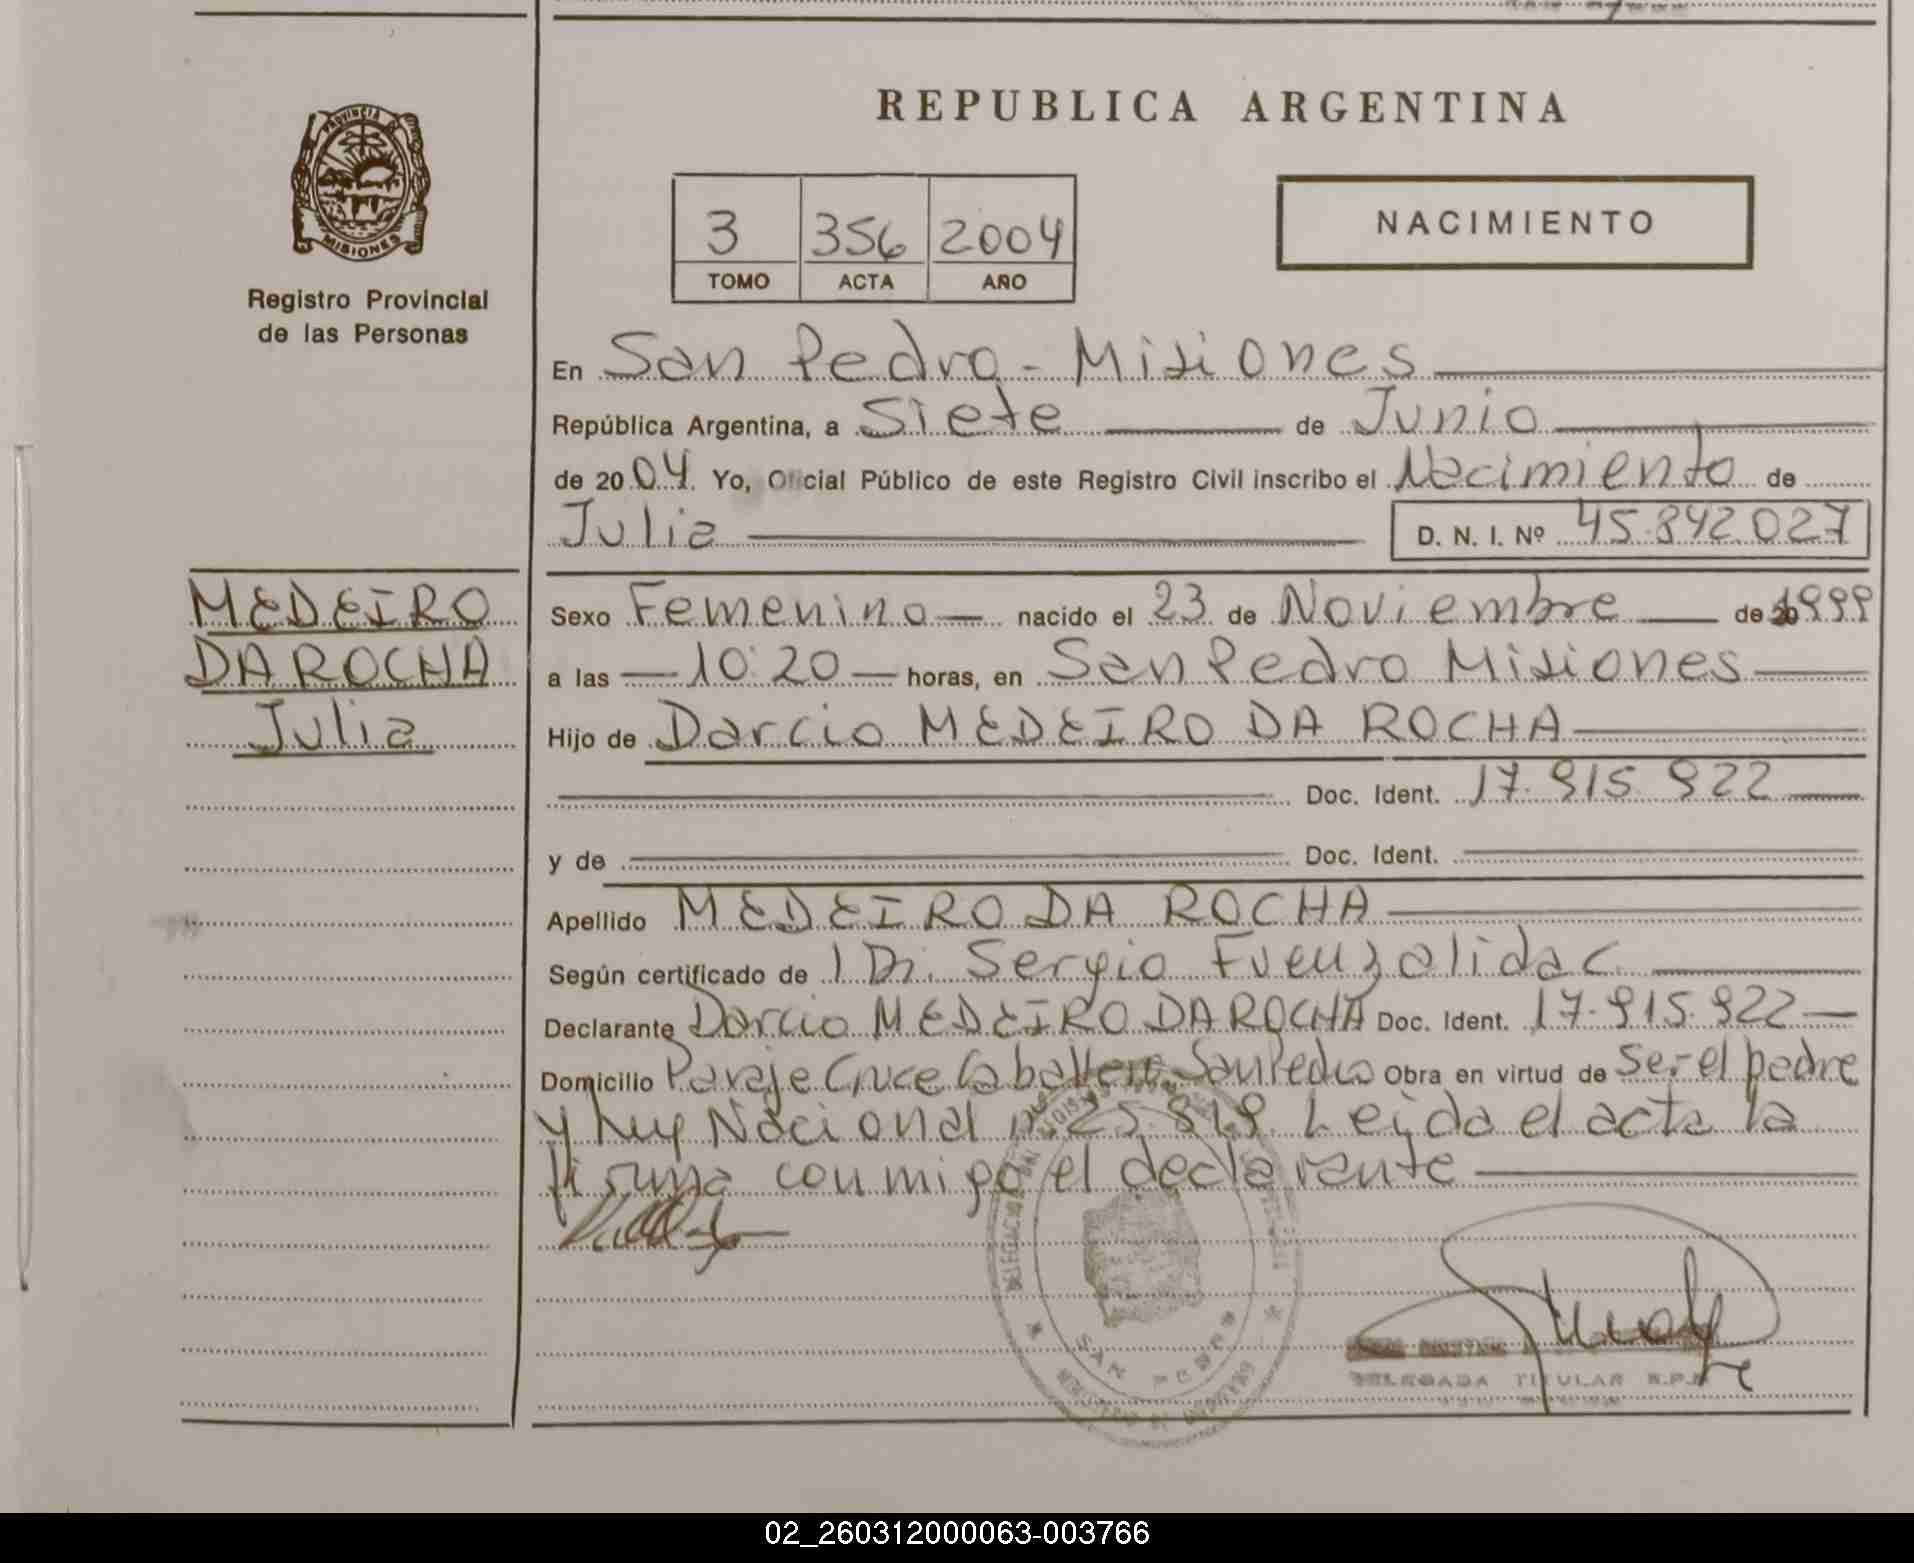 REPUBLICA ARGENTINA
PROVINCIA DE
MISIONES
Registro Provincial
de las Personas
3 356 2004
TOMO ACTA AÑO
NACIMIENTO
En San Pedro - Misiones
República Argentina, a Siete de Junio
de 20 04 Yo, Oficial Público de este Registro Civil inscribo el Nacimiento de
Julia D. N. I. Nº 45.842.027
MEDEIRO
DA ROCHA
Julia
Sexo Femenino nacido el 23 de Noviembre de 1999
a las 10:20 horas, en San Pedro Misiones
Hijo de Darcio MEDEIRO DA ROCHA
Doc. Ident. 17.915.922
y de Doc. Ident.
Apellido MEDEIRO DA ROCHA
Según certificado de Dr. Sergio Fuenzalida C.
Declarante Darcio MEDEIRO DA ROCHA Doc. Ident. 17.915.922
Domicilio Paraje Cruce Caballero San Pedro Obra en virtud de ser el padre
y Ley Nacional nº 25.819. Leída el acta la
firma conmigo el declarante
SAN PEDRO
DELEGADA TITULAR R.P.P.
02_260312000063-003766